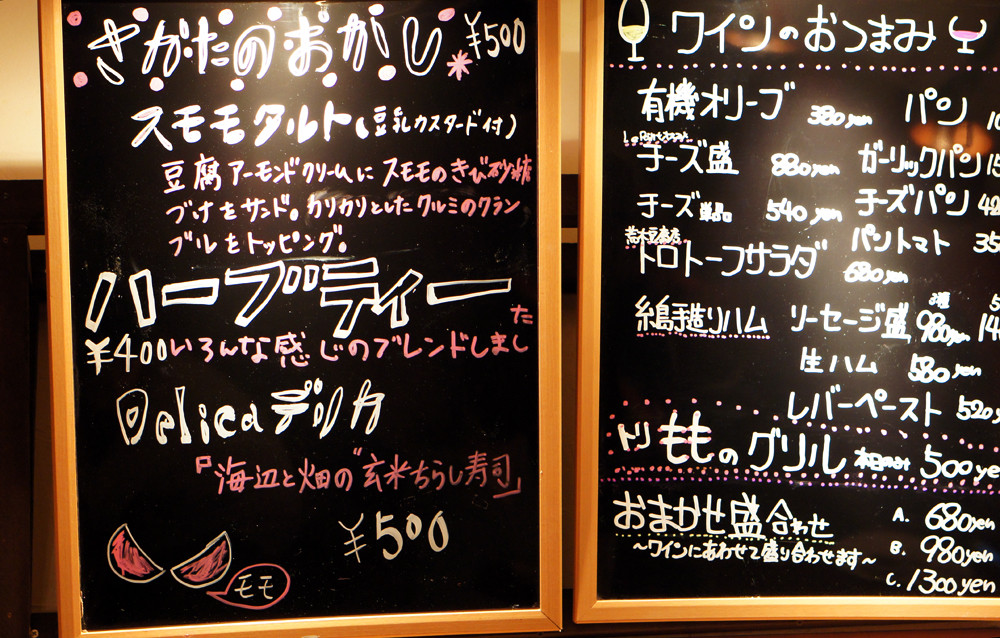 さがたのおかし ¥500
スモモタルト(豆乳カスタード付)
豆腐アーモンドクリームにスモモのきび砂糖
づけをサンド。カリカリとしたクルミのクラン
ブルをトッピング。
ハーブティー
¥400いろんな感じのブレンドしました
Delicaデリカ
『海辺と畑の"玄米ちらし寿司』
¥500
モモ
ワインのおつまみ
有機オリーブ 380yen
チーズ盛 880yen
チーズ単品 540yen
トロトーフサラダ 680yen
糸島手造りハム
ソーセージ盛 980yen
生ハム 580yen
レバーペースト 520
パン
ガーリックパン
チーズパン
パントマト
トリもものグリル 本日のみ 500ye
おまかせ盛合わせ
〜ワインにあわせて盛り合わせます〜
A. 680yen
B. 980yen
C. 1300yen